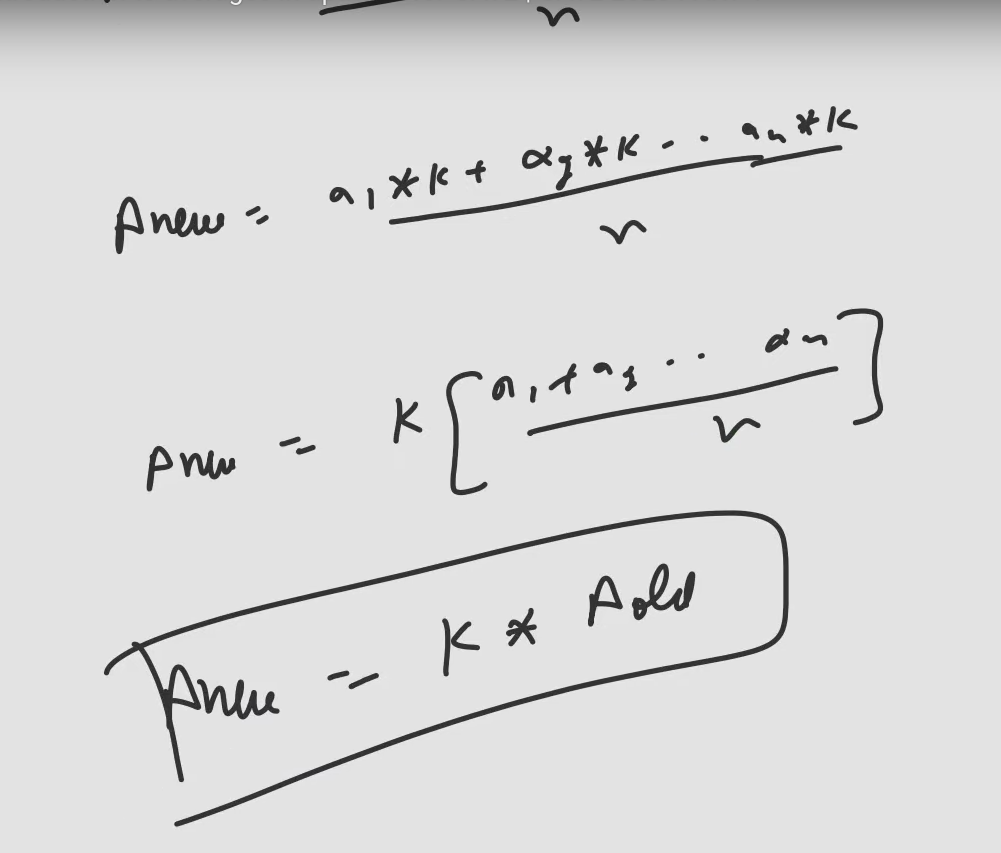 n
Anew = a1*k + a2*k .. an*k
n
Anew = K [a1 + a2 .. an]
n
Anew = K * Aold